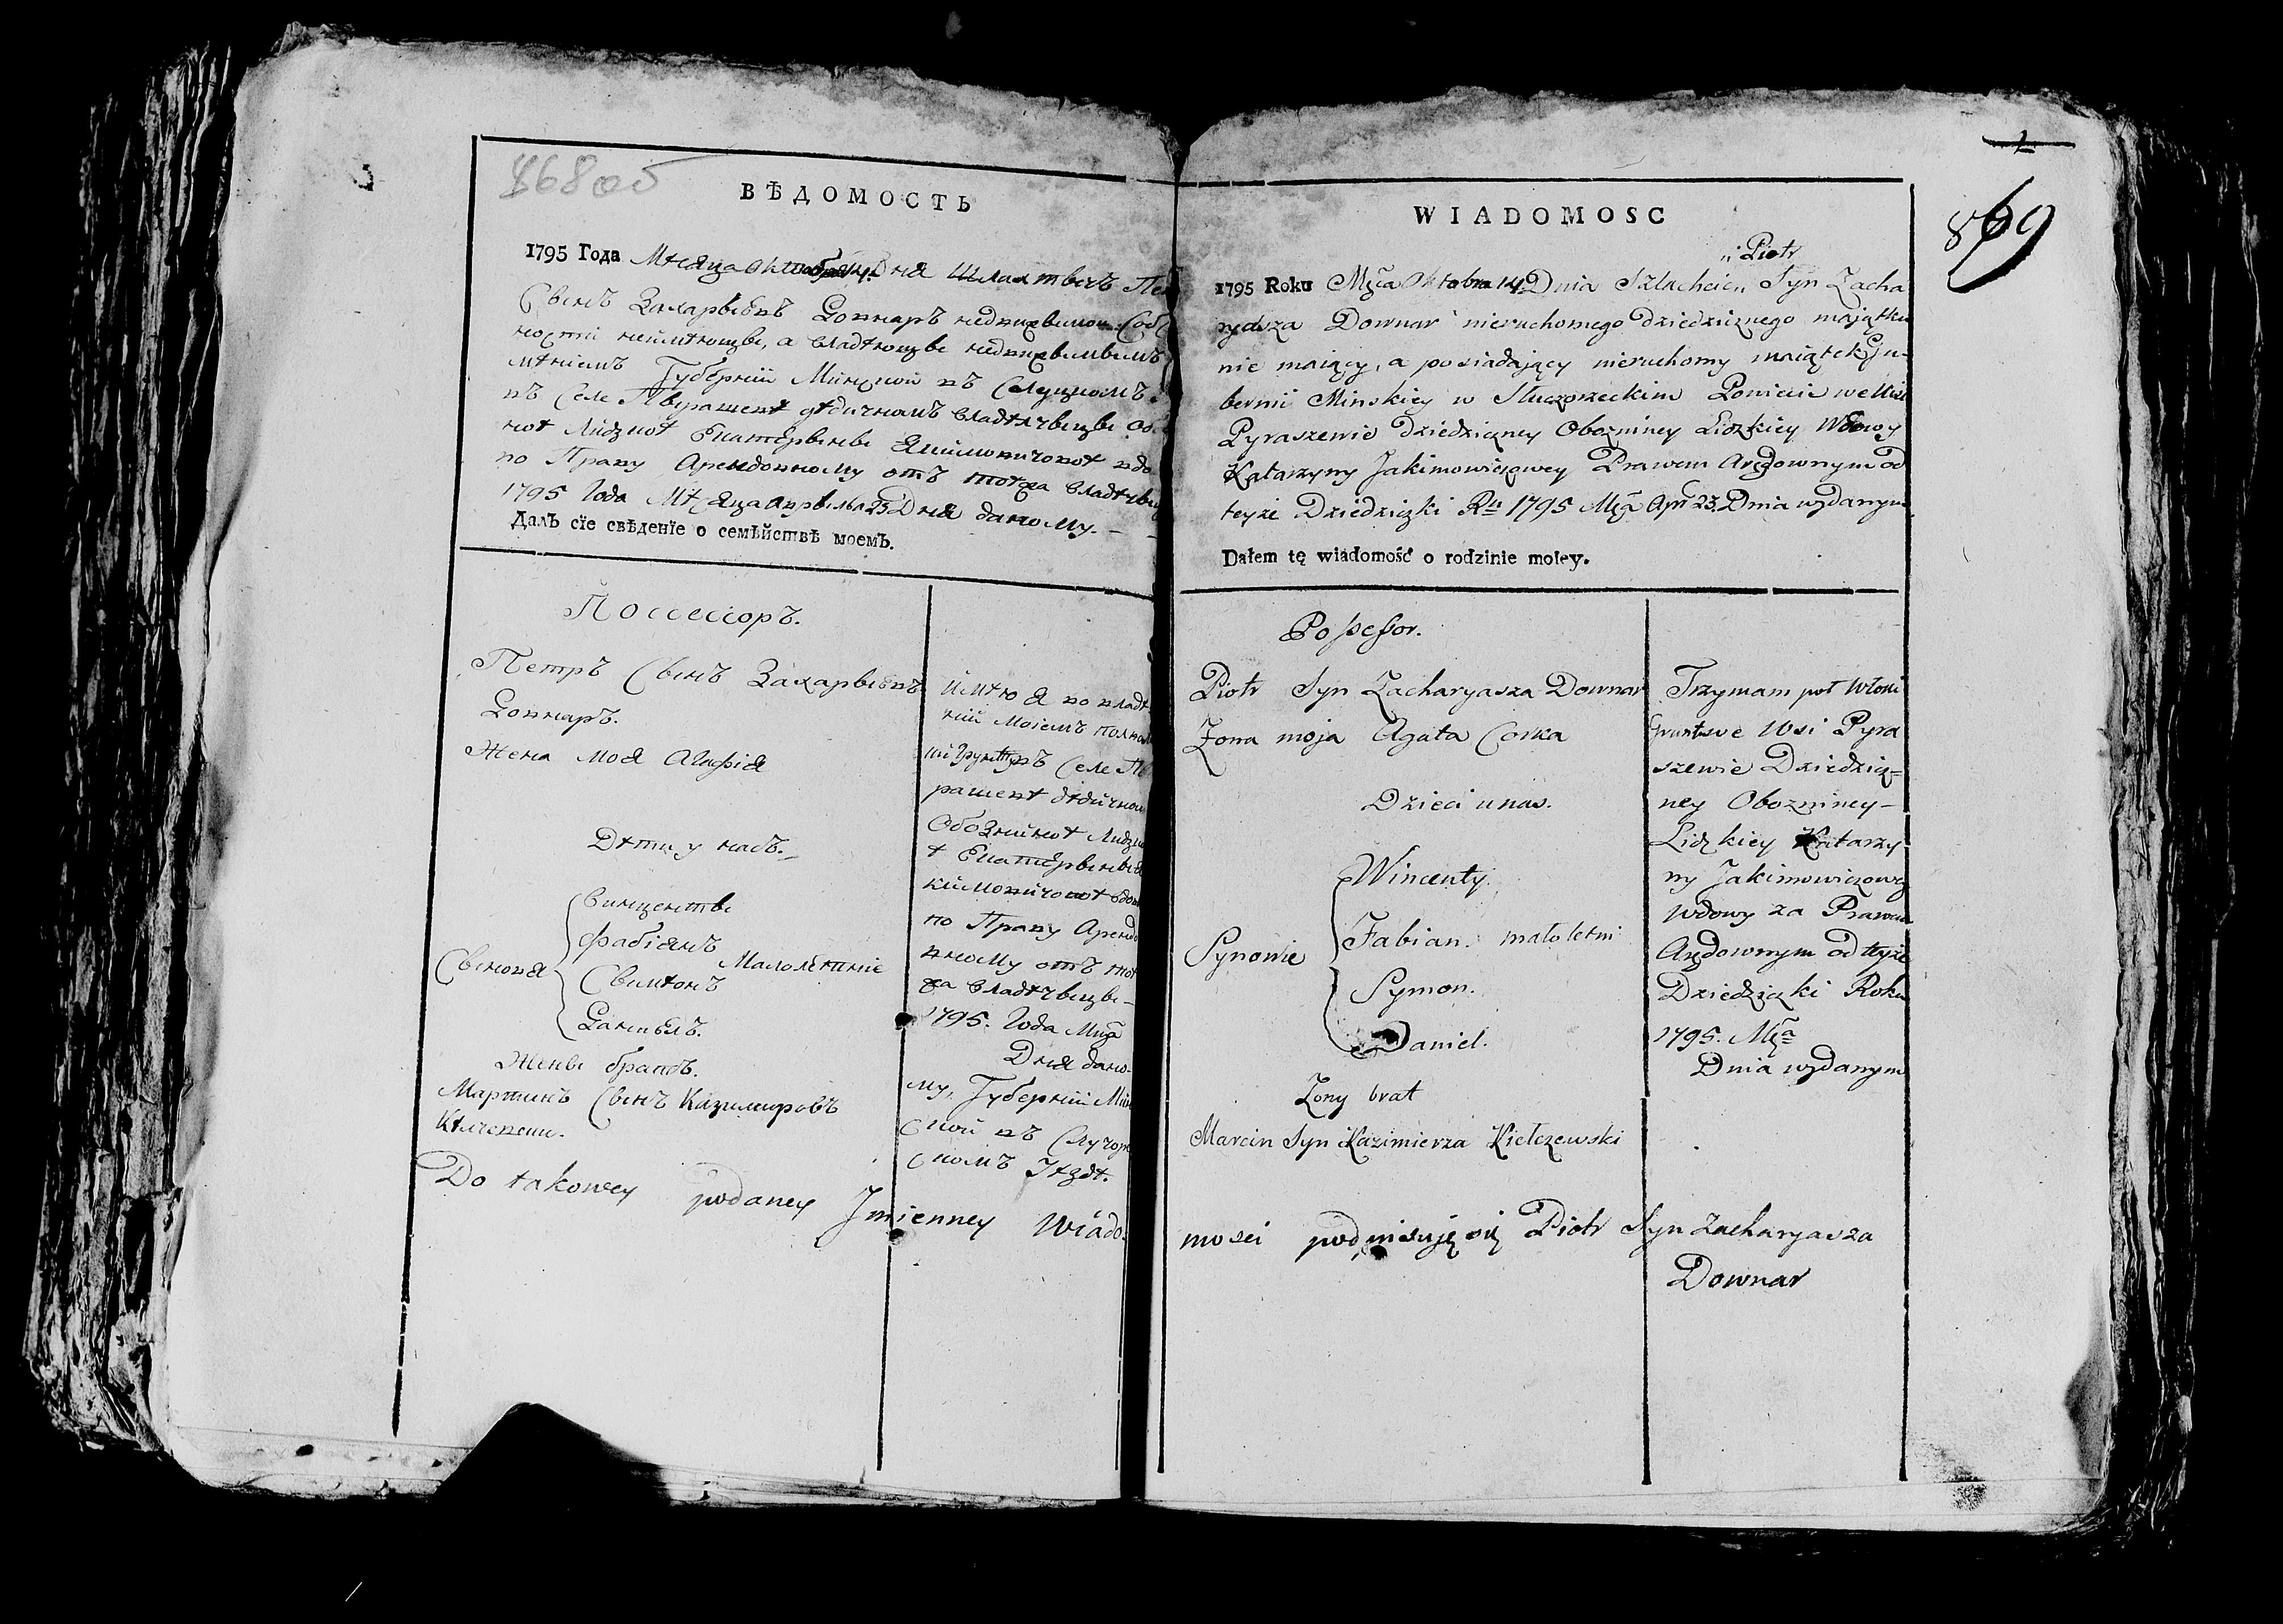 868 об
ВѢДОМОСТЬ
1795 Года Мѣсяца Октобра 14 Дня Шляхтичъ
Сынъ Захарыевъ Довнаръ недвижимои
ности неимѣющы, а владѣющы недвижимымъ
мѣніемъ Губерніи Минской въ Слуцкомъ
въ Селе Пырашеве дѣдичномъ владѣлчыцы
ноѣ Лидзкоѣ Екатерыны Якимовичовоѣ вдо
по Праву Арендовному отъ тоѣжа владѣлчы
1795 Года Мѣсяца Апрыля 23 Дня даному. —
Далъ сїе свѣденїе о семѣйствѣ моемъ.
Поссессоръ.
Петръ Сынъ Захарыевъ
Довнаръ.
Жена Моя Агафія
Дѣти у насъ.
Сыновя
Винценты
Фабіянъ
Малолѣтніе
Сымѣонъ
Даніелъ.
Жены братъ.
Мартинъ Сынъ Казимировъ
Имѣю я во владѣ
ніи Моіемъ пол
ни Грунту въ Селе Пы
рашеве дѣдичной
Обознинноѣ Лидзко
ѣ Екатерыны Я
кимовичовоѣ вдовы
по Праву Арендо
вному отъ тоѣ
жа владѣлчыцы —
1795. Года Мца
Дня дано-
му, Губерніи Мин
ской въ Случор
скомъ Уѣздѣ.
Do takowey podaney Jmienney Wiado-
1
869
WIADOMOSC
„ Piotr
1795 Roku Mca Oktobra 14 Dnia Szlachcic „ Syn Zacha
ryasza Downar nieruchomego dziedzicznego majątku
nie maiący, a posiadający nieruchomy maiątek Gu-
bernii Minskiey w Słuczorzeckim Powiecie we Wsi
Pyraszewie Dziedziczney Obozniney Lidzkiey Wdowy
Katarzyny Jakimowiczowey Prawem Arędownym od
teyże Dziedziczki Ru 1795 Mca Apr 23 Dnia wydanym
Dałem tę wiadomość o rodzinie moiey.
Possessor.
Piotr Syn Zacharyasza Downar
Zona moja Agata Corka
Dzieci u nas.
Synowie
Wincenty.
Fabian. małoletni
Symon.
Daniel.
Zony brat
Marcin Syn Kazimierza Kiełczewski
Trzymam poł Włoki
Gruntu we Wsi Pyra
szewie Dziedzicz=
ney Obozniney —
Lidzkiey Katarzy-
ny Jakimowiczowey
Wdowy za Prawem
Arędownym od teyże
Dziedziczki Roku
1795. Mca
Dnia wydanym
mosci podpisuję się Piotr Syn Zacharyasza
Downar